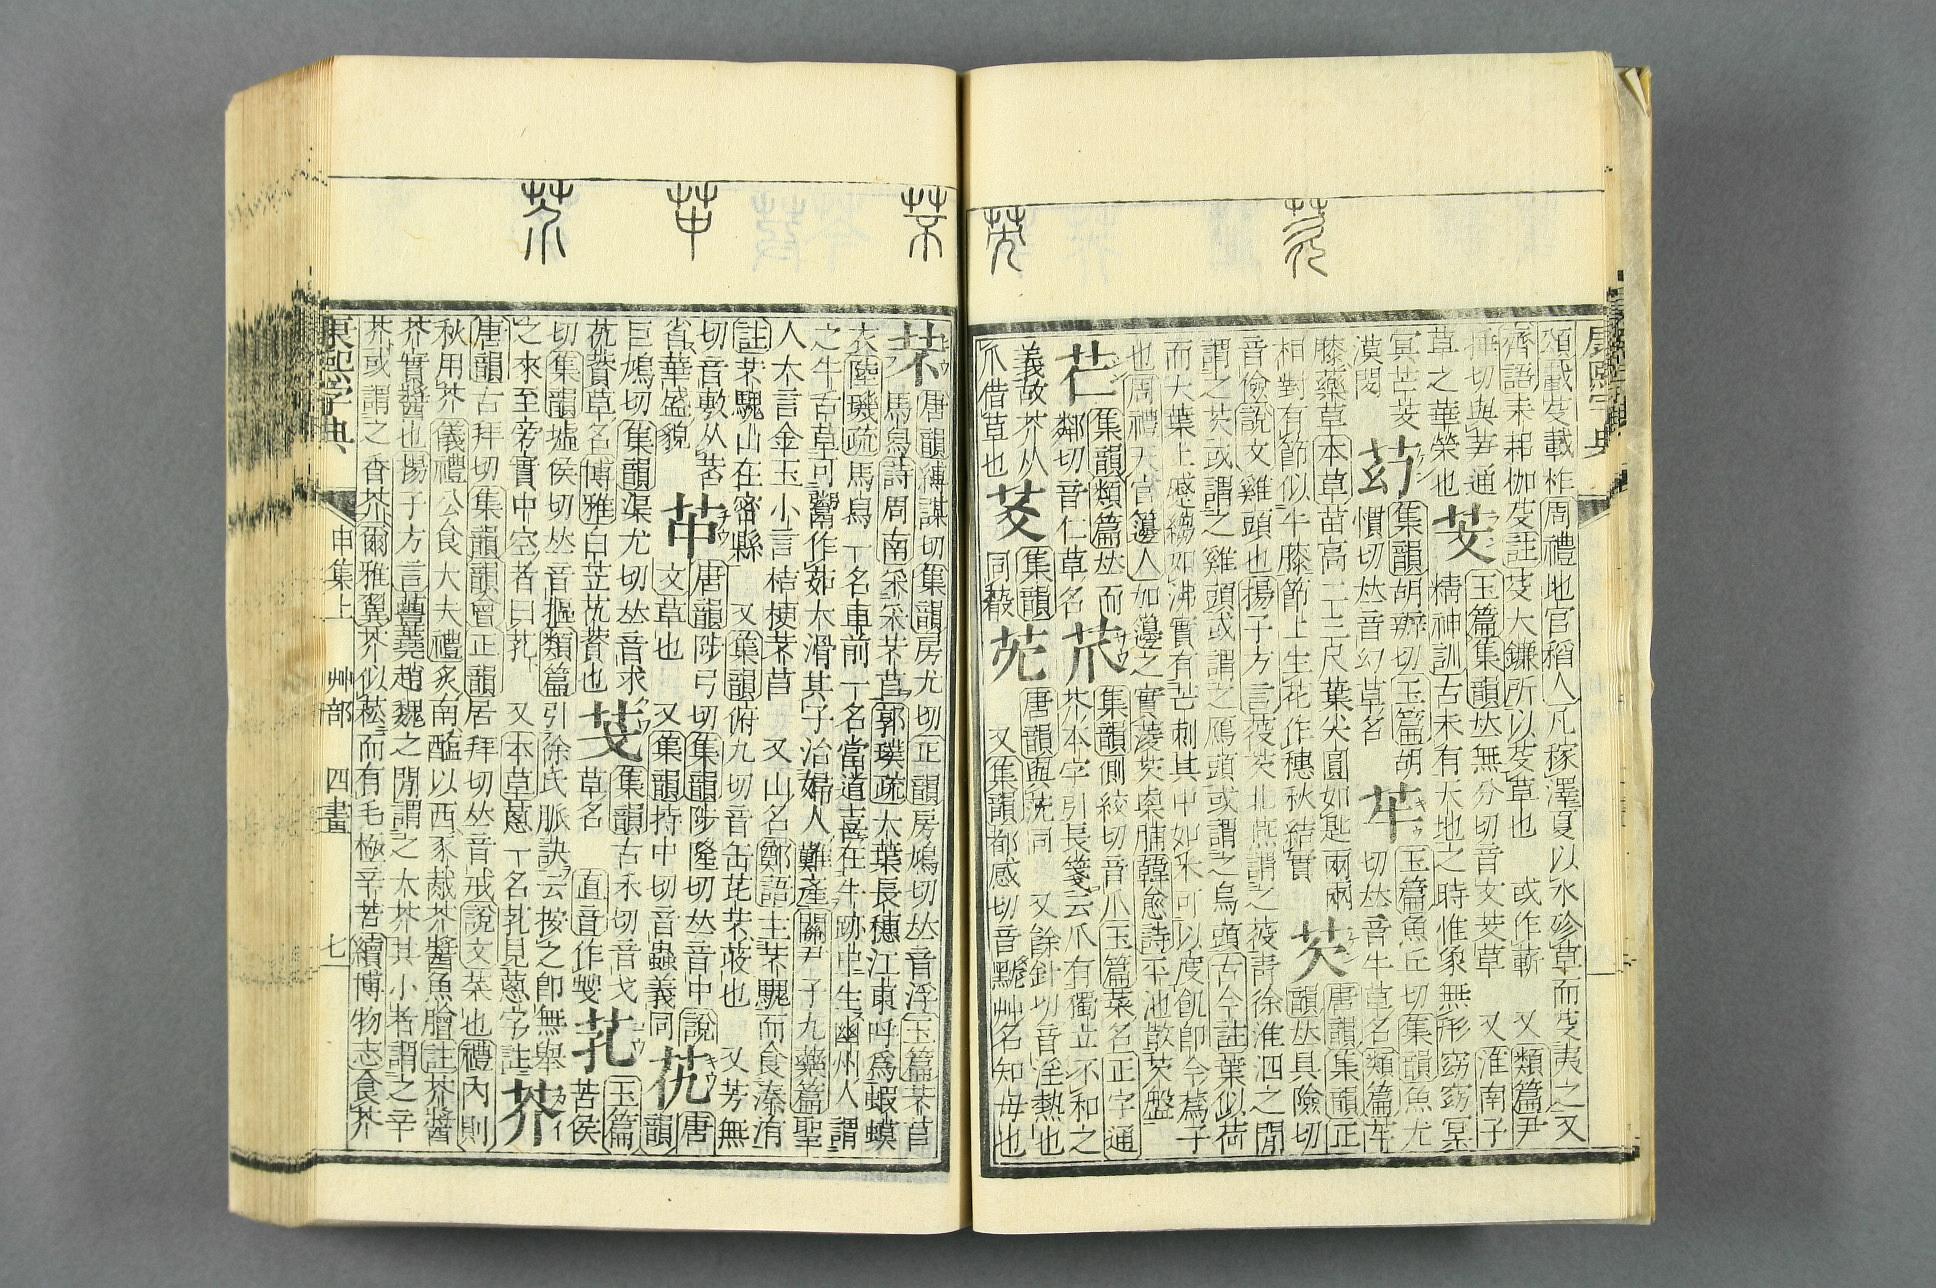 康熙字典
頌載芟載柞周禮地官稻人凡稼澤夏以水殄草而芟夷之又
齊語耒耜枷芟註芟大鎌所以芟草也 或作蔪 又類篇尹
捶切與芛通 芠 玉篇集韻𠀤無分切音文芠草 又淮南子
草之華榮也 精神訓古未有天地之時惟象無形窈窈冥
冥芒芠 集韻胡辦切玉篇胡 玉篇魚丘切集韻魚尤
漠閔 慣切𠀤音幻草名 切𠀤音牛草名類篇
膝藥草本草苗高二三尺葉尖圓如匙兩兩 唐韻集韻正
相對有節似牛膝節上生花作穗秋結實 芡 韻𠀤具險切
音儉說文雞頭也揚子方言葰芡北燕謂之葰靑徐淮泗之閒
謂之芡或謂之雞頭或謂之鴈頭或謂之烏頭古今註葉似荷
而大葉上蹙縐如沸實有芒刺其中如米可以度飢卽今蔿子
也周禮天官籩人加籩之實蔆芡㮚脯韓愈詩平池散芡盤
芢 集韻類篇𠀤而 集韻側絞切音爪玉篇菜名正字通
鄰切音仁草名 芥本字引長箋云爪有獨立不和之
義故芥从 集韻 唐韻與莐同 又餘針切音淫熱也
爪借草也 同毅 又集韻都感切音黕艸名知母也
芣 唐韻縛謀切集韻房尤切正韻房鳩切𠀤音浮玉篇芣苢
馬舄詩周南采采芣苢郭璞疏大葉長穗江東呼爲蝦蟆
衣陸璣疏馬舄一名車前一名當道喜在牛跡中生幽州人謂
之牛舌草可鬻作茹大滑其子治婦人難產關尹子九藥篇聖
人大言金玉小言桔梗芣苢 又山名鄭語主芣騩而食溱洧
註芣騩山在密縣 又集韻俯九切音缶芘芣荍也 又芳無
切音敷从苦 唐韻陟弓切集韻陟隆切𠀤音中說 唐
省華盛貌 文草也 又集韻持中切音蟲義同 韻
巨鳩切集韻渠尤切𠀤音求 集韻古禾切音戈 芤 玉篇
草名博雅白芷 也 草名 直音作 苦侯
切集韻墟侯切𠀤音摳類篇引徐氏脈訣云按之卽無舉
之來至旁實中空者曰芤 又本草蔥一名芤見蔥字註 芥
唐韻古拜切集韻韻會正韻居拜切𠀤音戒說文菜也禮內則
秋用芥儀禮公食大夫禮炙南醢以西豕胾芥醬魚膾註芥醬
芥實醬也揚子方言蘴蕘趙魏之閒謂之大芥其小者謂之辛
芥或謂之香芥爾雅翼芥似菘而有毛極辛苦續博物志食芥
康熙字典 申集上 艸部 四畫 七